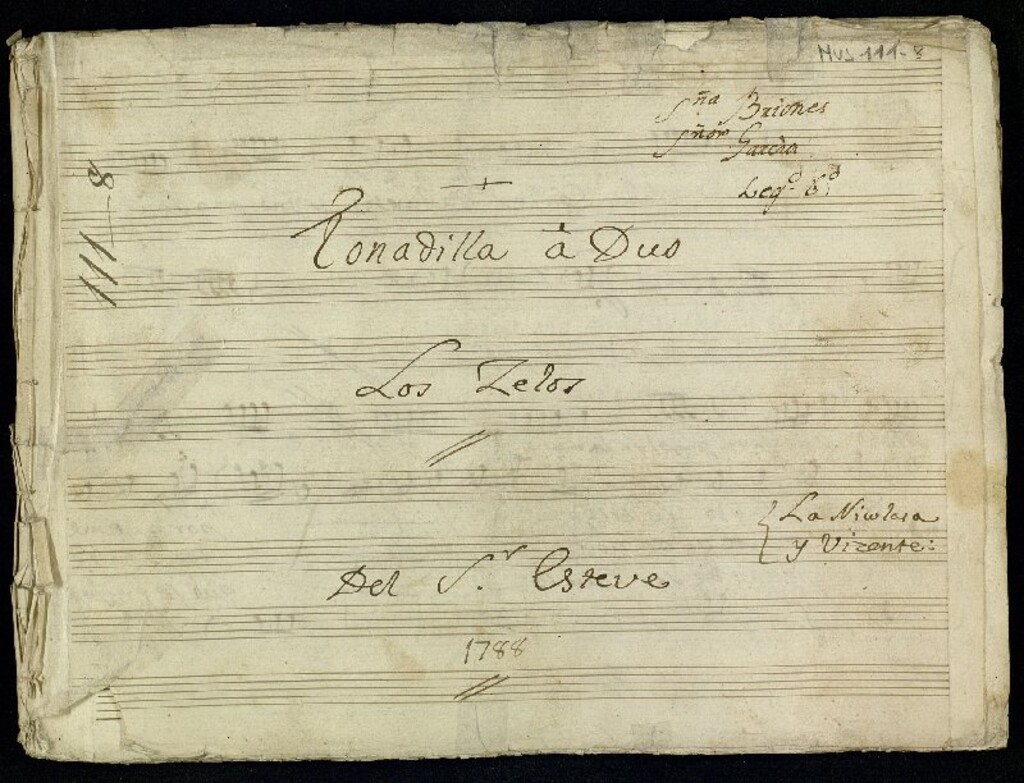 Mus 111-8
Sñra Briones
Sñor Garcia
Legº 6º
111-8
Tonadilla à Duo
Los Zelos
La Nicolasa
y Vizente:
Del Sr. Esteve
1788